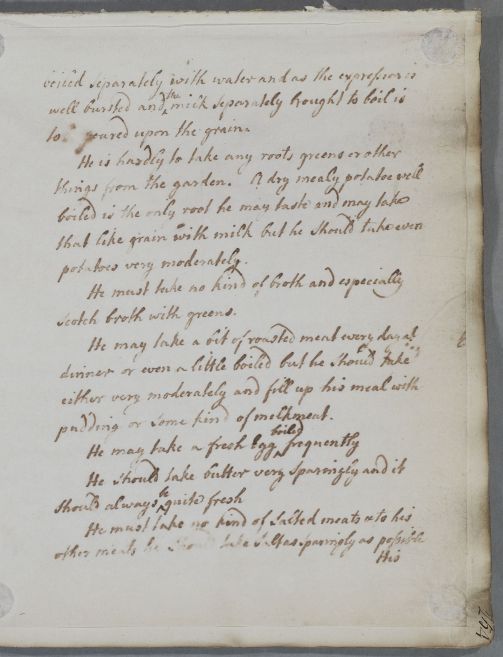 boiled separately with water and as the expression is
well bursted and the milk separately brought to boil is
to poured upon the grain.
He is hardly to take any roots greens or other
things from the garden. A dry mealy potatoe well
boiled is the only root he may taste and may take
that like grain with milk but he should take even
potatoes very moderately.
He must take no kind of broth and especially
scotch broth with greens.
He may take a bit of roasted meat every day at
dinner or even a little boiled but he should take
either very moderately and fill up his meal with
pudding or some kind of melkmeat.
He may take a fresh egg boiled frequently
He should take butter very sparingly and it
should always be quite fresh
He must take no kind of salted meats & to his
other meats he should take salt as sparingly as possible
His